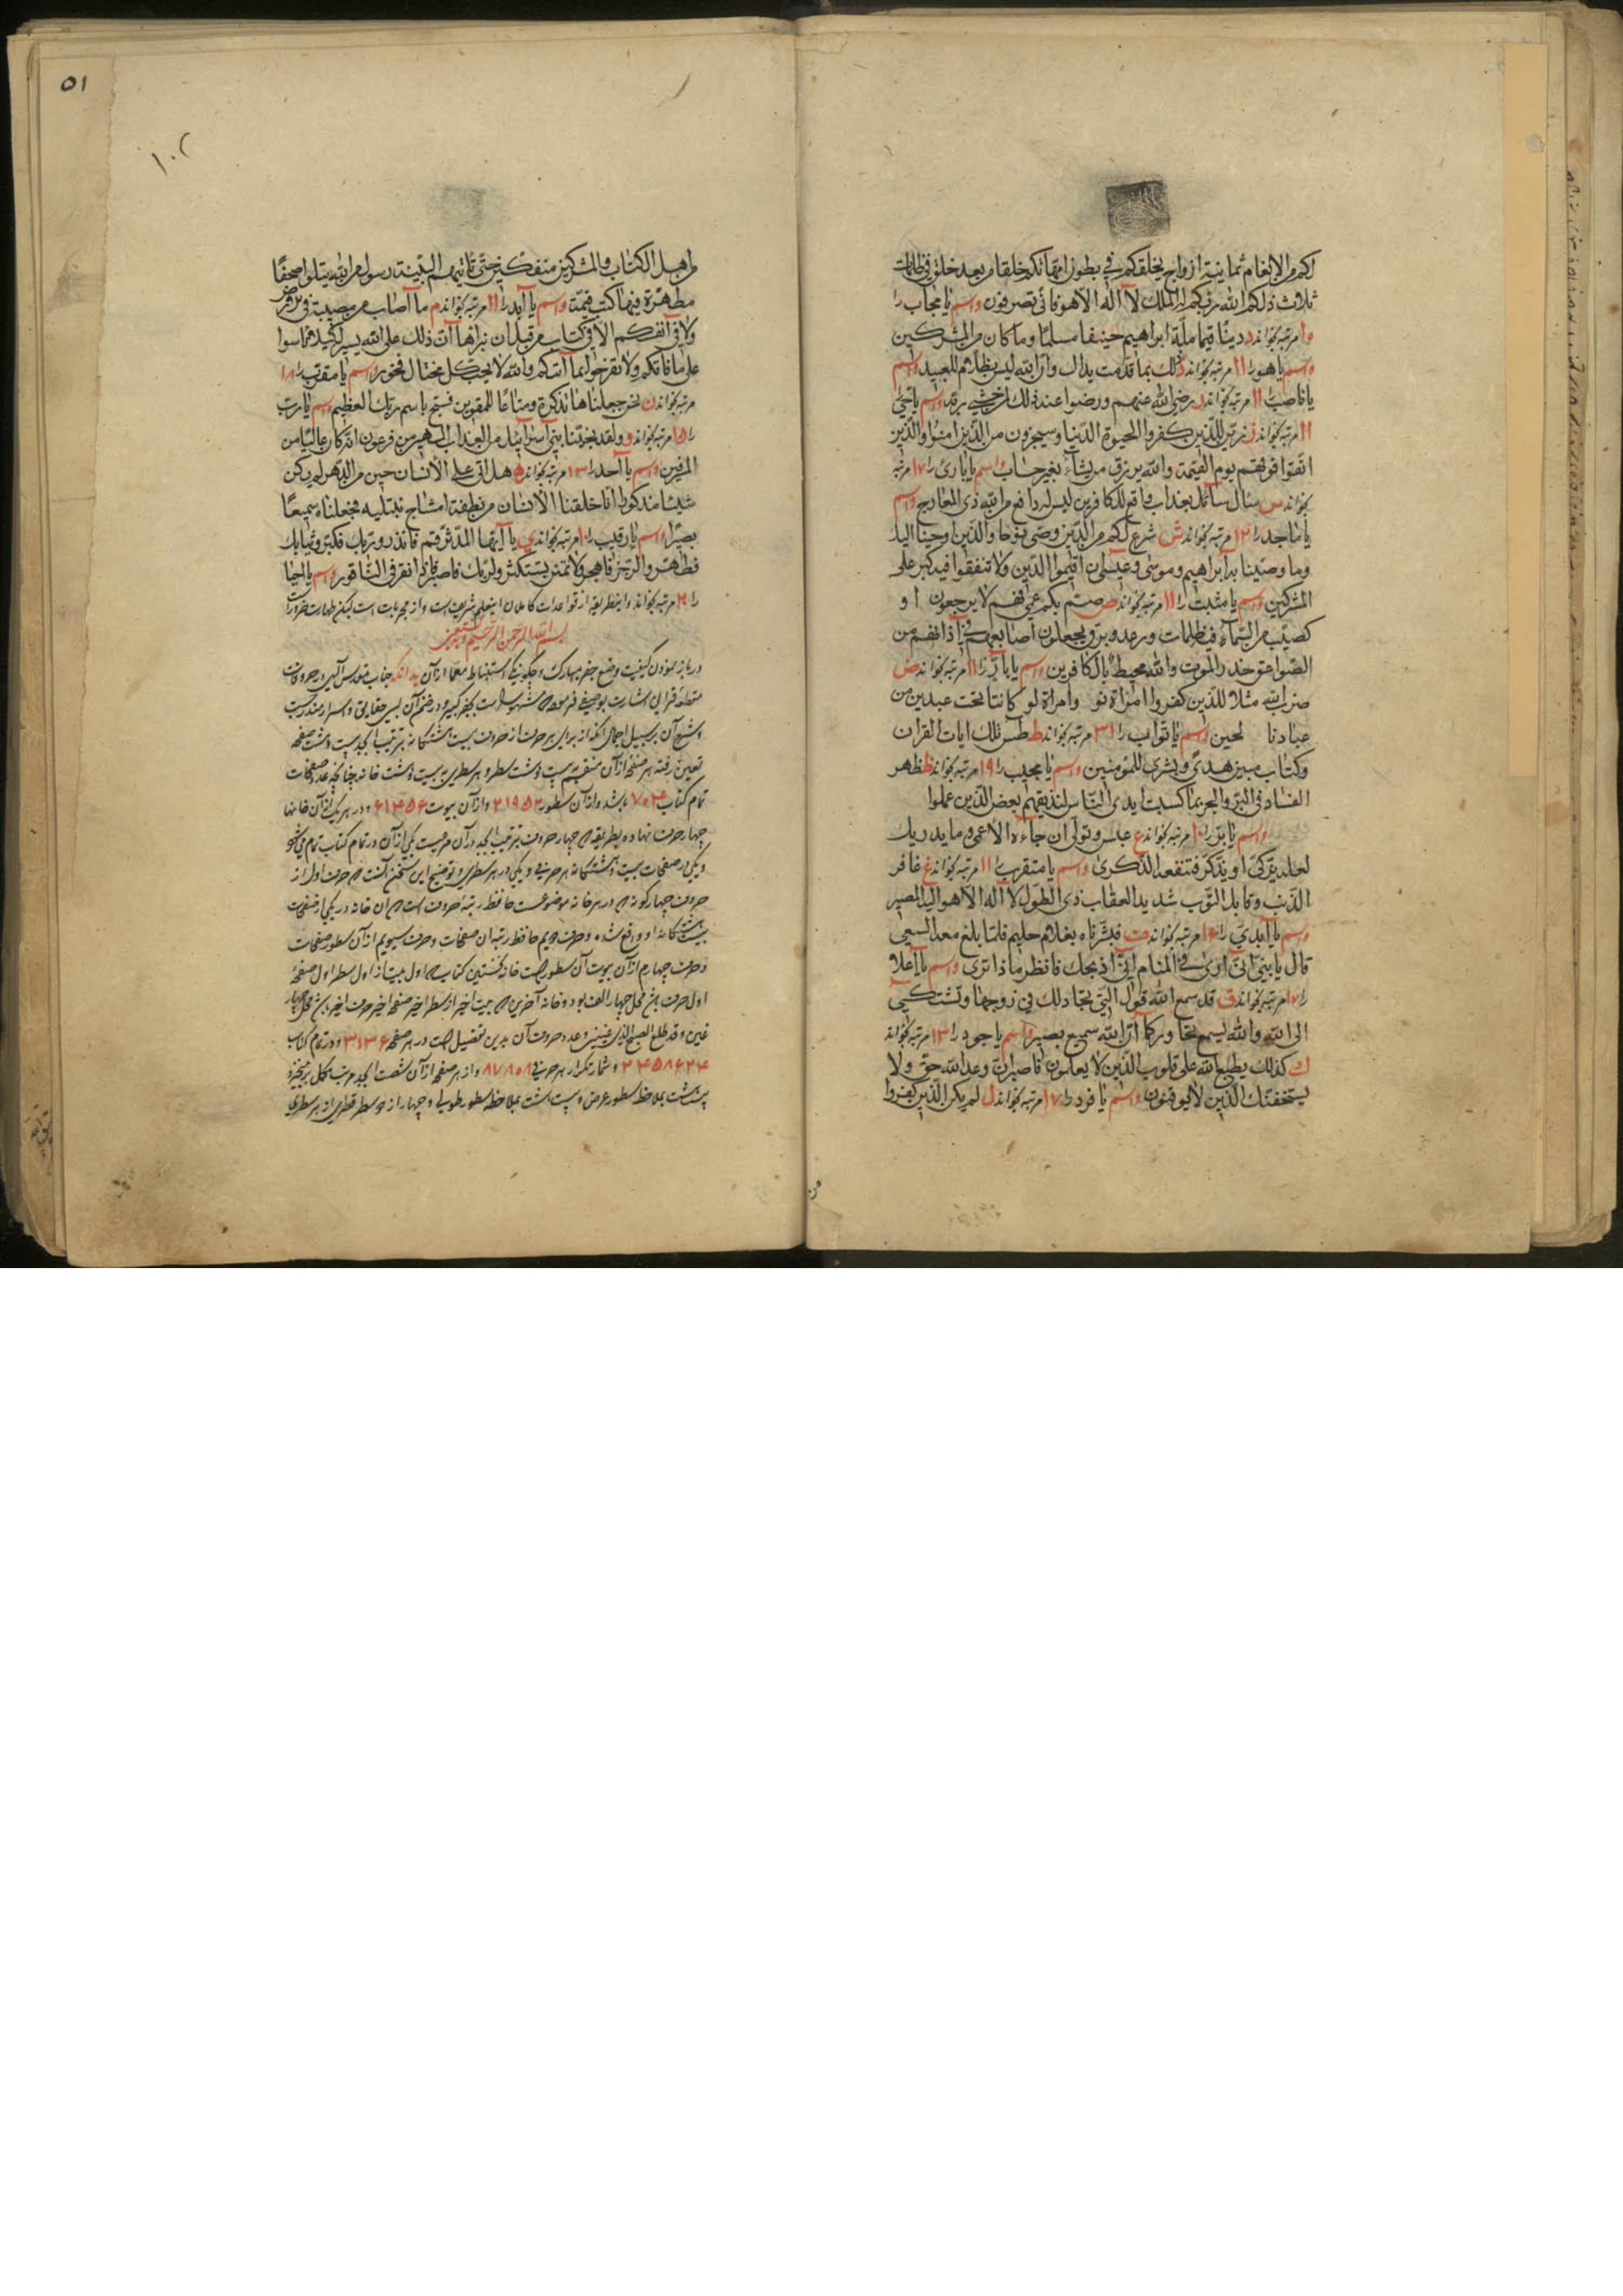 لكم من الانعام ثمانية ازواج يخلقكم في بطون امهاتكم خلقا من بعد خلق في ظلمات
ثلاث ذلكم الله ربكم له الملك لآ اله الا هو فانى تصرفون واسم يا مجاب را
مرتبه بخواند د دينًا قيما ملة ابراهيم حنيفا مسلمًا وما كان من المشركين
واسم يا هو را ۱۱ مرتبه بخواند ذ ذلك بما قدمت يداك وان الله ليس بظلام للعبيد واسم
يا ناصر ۱۱ مرتبه بخواند ر رضى الله عنهم ورضوا عنه ذلك لمن خشى ربه واسم يا
۱۱ مرتبه بخواند ز زين للذين كفروا الحيوة الدنيا ويسخرون من الذين امنوا والذين
اتقوا فوقهم يوم القيمة والله يرزق من يشآء بغير حساب واسم يا بارئ را ۱۷ مرتبه
بخواند س سئال سآئل بعذاب واقع للكافرين ليس له دافع من الله ذى المعارج واسم
يا ماجد را ۱۲ مرتبه بخواند ش شرع لكم من الدين ما وصى به نوحا والذين اوحينا اليك
وما وصينا به ابراهيم وموسى وعيسى ان اقيموا الدين ولا تتفقوا فيه كبر على
المشركين واسم يا مثبت را ۱۱ مرتبه بخواند ص صم بكم عمى فهم لا يرجعون او
كصيب من السمآء فيه ظلمات ورعد وبرق يجعلون اصابعهم فى آذانهم من
الصواعق حذر الموت والله محيط بالكافرين واسم يا بار را ۱۱ مرتبه بخواند ض
ضرب الله مثلا للذين كفروا امراة نو وامراة لو كانتا تحت عبدين من
عبادنا لحين واسم يا تواب را ۳۱ مرتبه بخواند ط طس تلك ايات القران
وكتاب مبين هدى وبشرى للمؤمنين واسم يا مجيب را ۱۹ مرتبه بخواند ظ ظهر
الفساد فى البر والبحر بما كسبت ايدى الناس لنذيقهم بعض الذين عملوا
واسم يا بر را ۱۰ مرتبه بخواند ع عبس وتولى ان جاءه الاعمى وما يدريك
لعله يزكى او يذكر فتنفعه الذكرى واسم يا متقرب را ۱۱ مرتبه بخواند غ غافر
الذنب وقابل التوب شديد العقاب ذى الطول لا اله الا هو اليه المصير
واسم يا ابدى را ۱۶ مرتبه بخواند ف فبشرناه بغلام حليم فلما بلغ معه السعى
قال يا بنى انى ارى فى المنام انى اذبحك فانظر ماذا ترى واسم يا اعلا
را ۱۷ مرتبه بخواند ق قد سمع الله قول التى تجادلك فى زوجها وتشتكى
الى الله والله يسمع تحاوركما ان الله سميع بصير واسم يا جود را ۱۳ مرتبه بخواند
ك كذلك يطبع الله على قلوب الذين لا يعلمون فاصبر ان وعد الله حق ولا
يستخفنك الذين لا يوقنون واسم يا فرد را ۱۷ مرتبه بخواند ل لم يكن الذين كفروا
من
۵۱
۱۰۲
من اهل الكتاب والمشركين منفكين حتى تاتيهم البينة رسول من الله يتلوا صحفًا
مطهرة فيها كتب قيمة واسم يا ابد را ۱۱ مرتبه بخواند م ما اصاب من مصيبة فى الارض
ولا فى انفسكم الا فى كتاب من قبل ان نبراها ان ذلك على الله يسير لكيلا تاسوا
على ما فاتكم ولا تفرحوا بما آتيكم والله لا يحب كل مختال فخور واسم يا مقرب را ۱۸
مرتبه بخواند ن نحن جعلناها تذكرة ومتاعًا للمقوين فسبح باسم ربك العظيم واسم يا رب
را ۱۵ مرتبه بخواند و ولقد نجينا بنى اسرآئيل من العذاب المهين من فرعون انه كان عاليا من
المسرفين واسم يا احد را ۱۳ مرتبه بخواند ه هل اتى على الانسان حين من الدهر لم يكن
شيئا مذكورا انا خلقنا الانسان من نطفة امشاج نبتليه فجعلناه سميعًا
بصيرًا واسم يا رقيب را ۱۰ مرتبه بخواند ى يا ايها المدثر قم فانذر وربك فكبر وثيابك
فطهر والرجز فاهجر ولا تمنن تستكثر ولربك فاصبر فاذا نقر فى الناقور واسم
را ۲ مرتبه بخواند واينطريقه از قواعدات كاملان اينعلم شريف است واز مجربات است ليكن طهارت ضرورات
بسم الله الرحمن الرحيم وبه نستعين
در باز نمودن كيفيت وضع جفر مبارك و چگونگى استنباط معما از آن بدانكه جناب مقدس الهى در حروفات
مقطعه قرانى اشارت فرموده كه مشهور است بجفر كبير و در ضمن آن بسى حقايق و اسرار مندرجست
و شرح آن بر سبيل اجمال آنكه از براى هر حرف از حروف بيست و هشتگانه بترتيب ابجد بيست و هشت صفحه
تعيين رفته هر صفحه از آن منقسم به بيست و هشت سطر و هر سطرى به بيست و هشت خانه چنانچه عدد صفحات
تمام كتاب ۷۸۴ باشد و از آن سطور ۲۱۹۵۲ و از آن بيوت ۶۱۴۶۵۶ و در هر يك از آن خانها
چهار حرف نهاده بطريقه كه چهار حروف بترتيب ابجد در آن مرعيست يكى از آن در تمام كتاب
و يكى در صفحات بيست و هشتگانه هر حرفى و يكى در هر سطرى و توضيح اين سخن آنست كه حرف اول از
حروف چهارگونه كه در هر خانه موضوعست حافظ رتبه حروفست كه آن خانه در يكى از صفحات
بيست و هشتگانه او واقع شده و حرف دويم حافظ رتبه ان صفحات و حرف سيويم از آن سطور صفحات
و حرف چهارم از آن بيوت آن سطور است خانه نخستين كتاب كه اول بيت از اول سطر اول صفحه
اول حرف محل چهار الف بود و خانه آخرين كه بيت اخير از سطر اخير صفحه اخير حرف اخير محل چهار
غين و قد طلع الصبح لذى عينين و عدد حروف آن بدين تفصيل است در هر صفحه ۳۱۳۶ و در تمام كتاب
۲۴۵۸۶۲۴ و شمار تكرار هر حرفى ۸۷۸۰۸ و از هر صفحه از آن شصت ابجد مرتب مكمل برميخيزد
بيست و هشت بملاحظه سطور عرض و بيست و هشت بملاحظه سطور طولى و چهار از دو سطر قطرى از هر سطرى